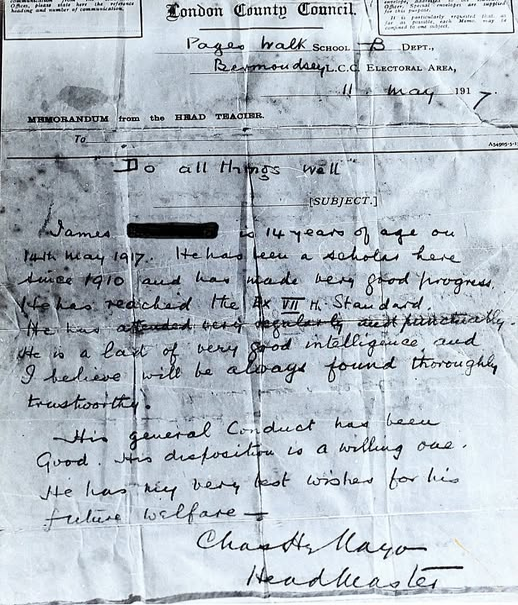 Officer, please state here the reference
heading and number of communication.
London County Council.
Officer. Special envelopes are supplied
for this purpose.
It is particularly requested that, as
far as possible, each Memo. may be
confined to one subject.
Pages Walk SCHOOL B DEPT.,
Bermondsey L.C.C. ELECTORAL AREA,
11. May 1917.
MEMORANDUM from the HEAD TEACHER.
To
Do all things well"
[SUBJECT.]
James is 14 years of age on
14th May 1917. He has been a scholar here
since 1910 and has made very good progress.
He has reached the Ex VII H. Standard.
He has attended very regularly and punctually.
He is a lad of very good intelligence and
I believe will be always found thoroughly
trustworthy.
His general Conduct has been
Good. His disposition is a willing one.
He has my very best wishes for his
future welfare—
Chas Hy Mayo
Head Master